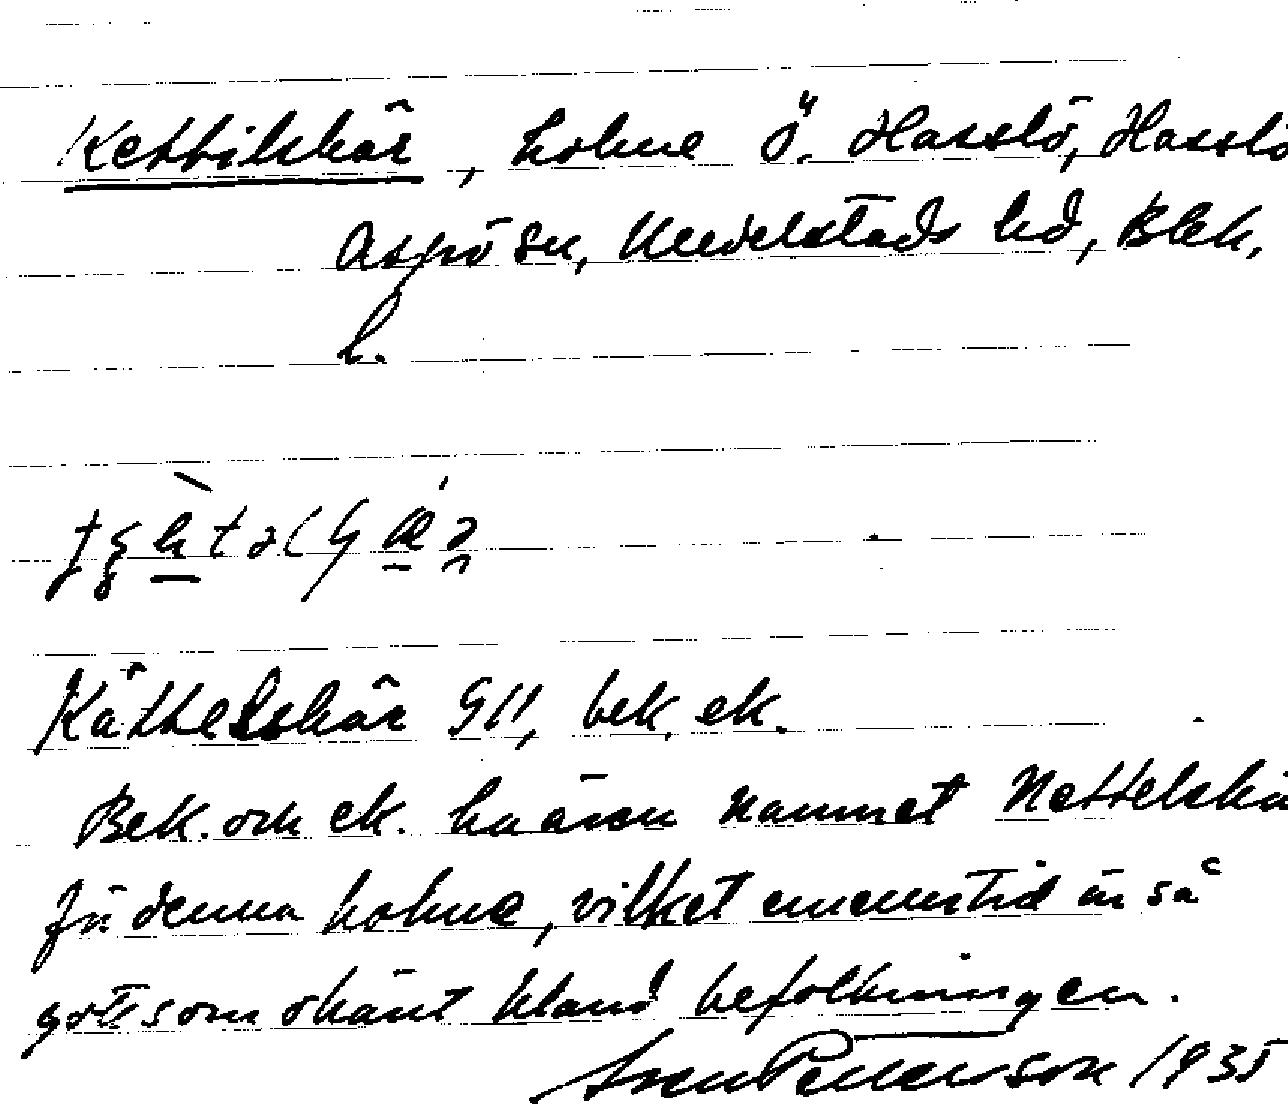 Kettilskär, holme Ö. Hasslö, Hasslö
Aspö sn, Medelstads hd, Blek.
l.
Kättelskär GH, bek. ek.
Bek. och ek. ha även namnet Nettelskä
för denna holme, vilket emellertid är så
gott som okänt bland befolkningen.
Sven Petterson 1935